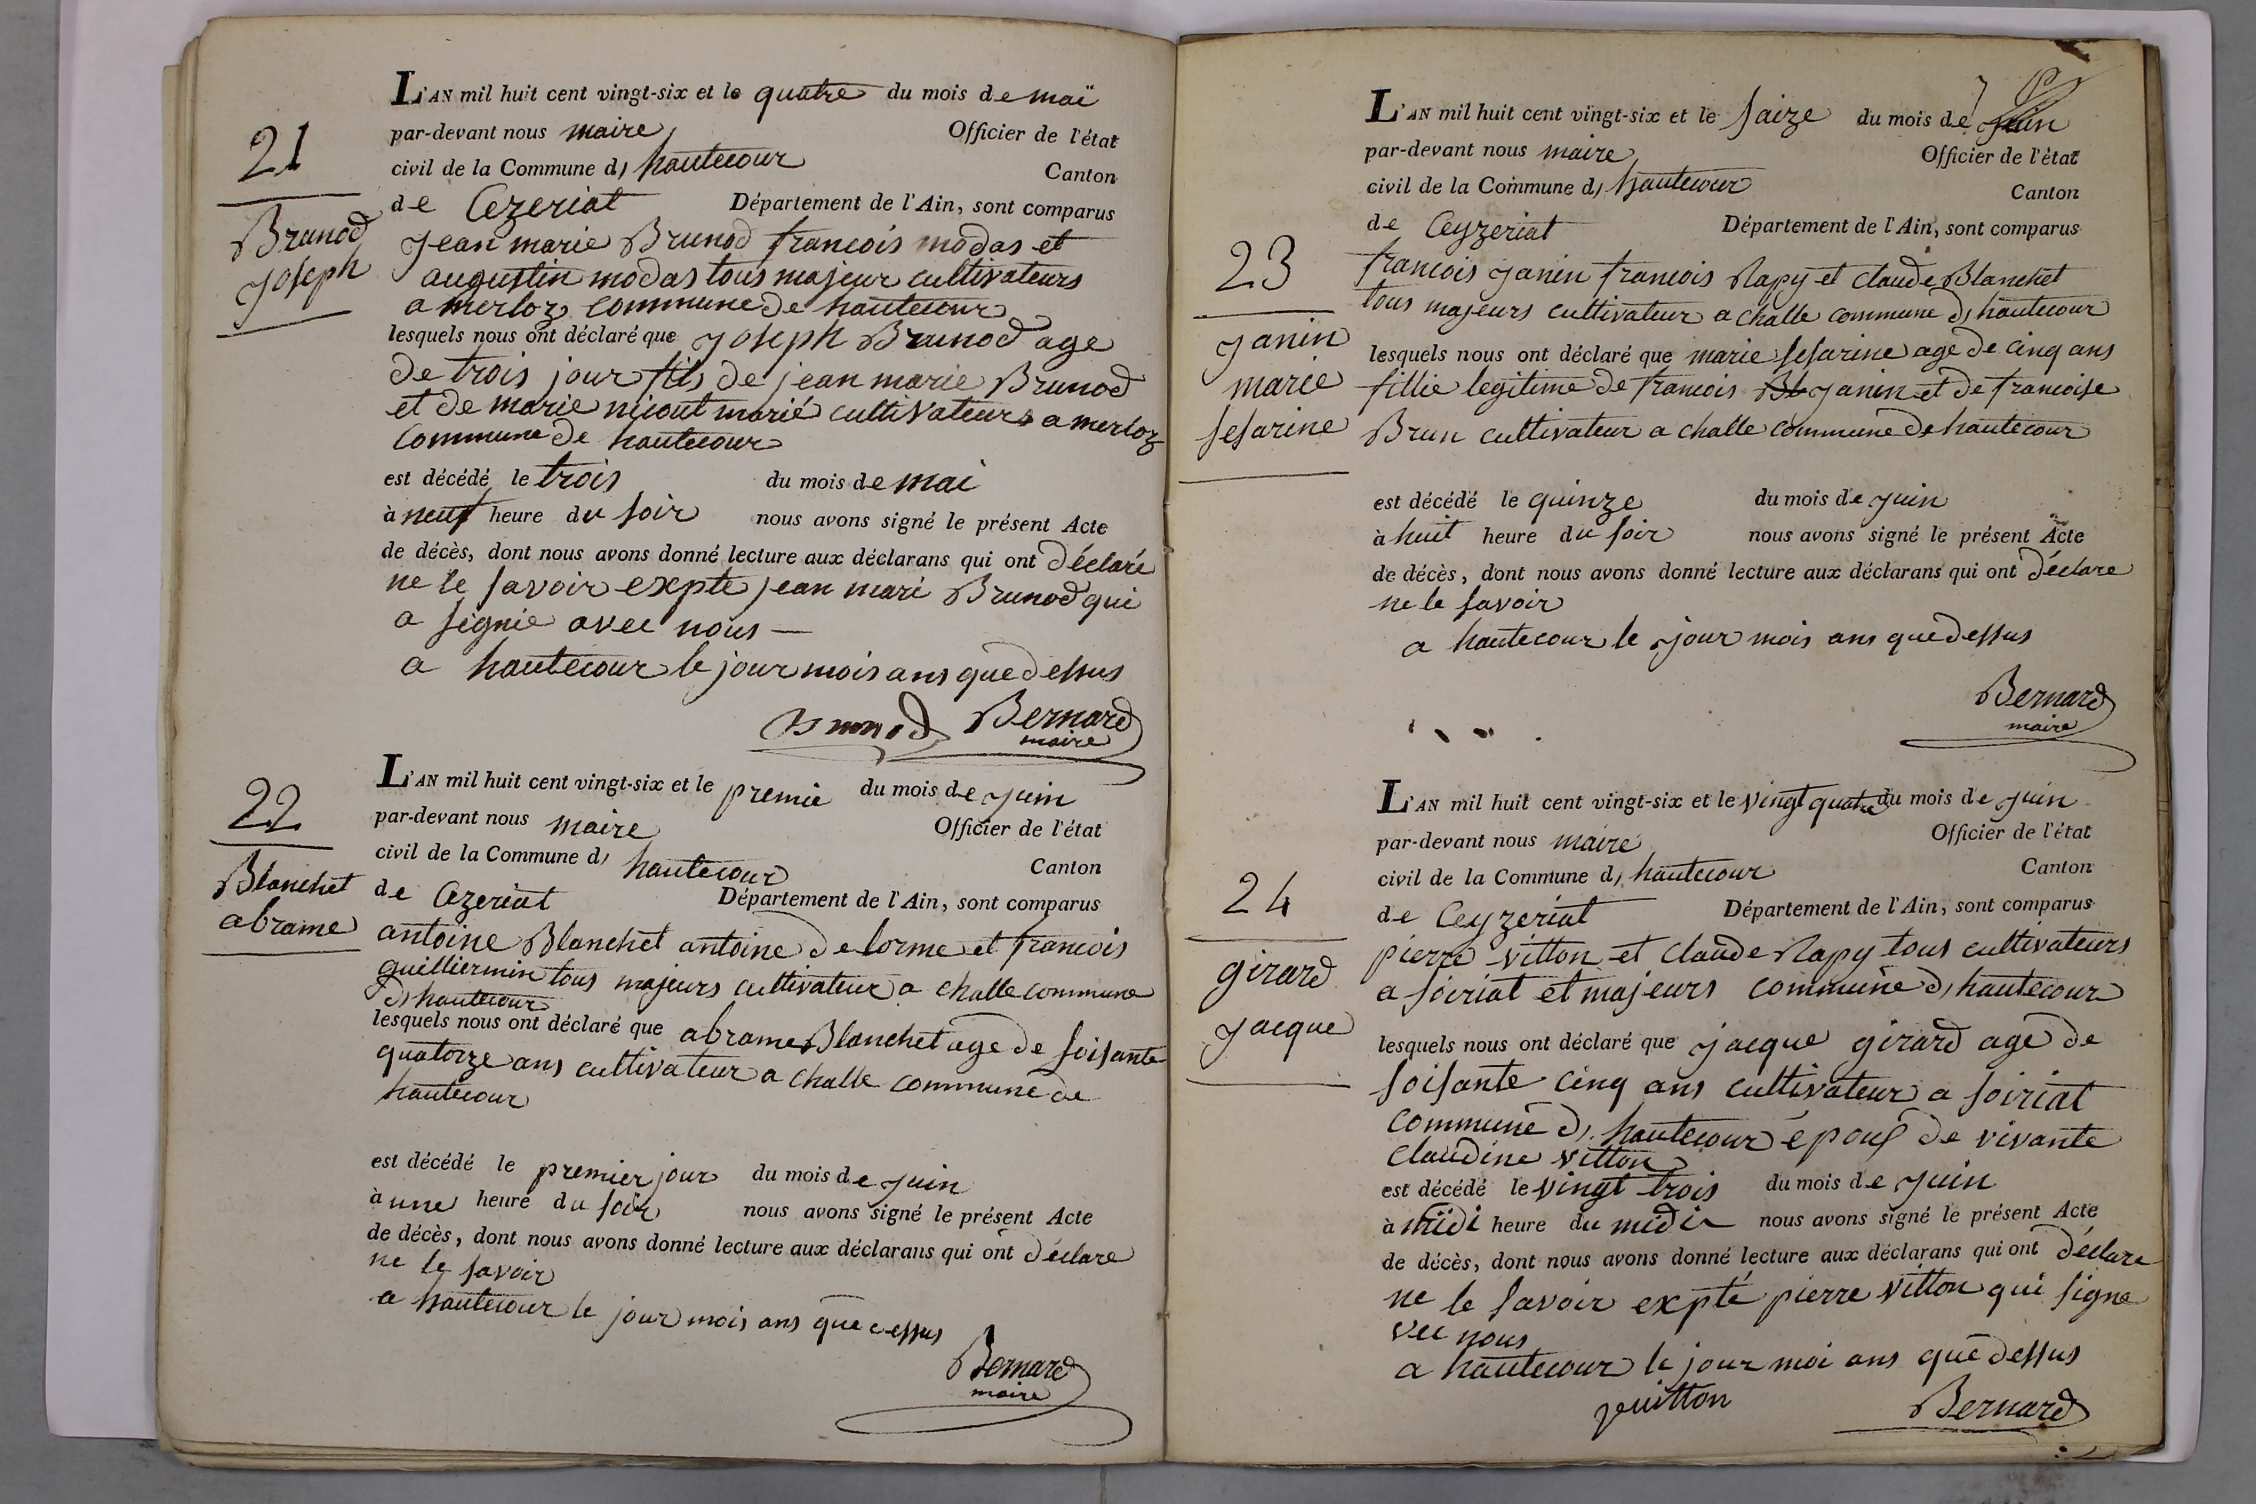 21
Brunod
Joseph
L'AN mil huit cent vingt-six et le quatre du mois de maï
par-devant nous maire Officier de l'état
civil de la Commune d, hautecour Canton
de Cezeriat Département de l'Ain, sont comparus
Jean marie Brunod francois modas et
augustin modas tous majeur cultivateurs
a merloz commune de hautecour
lesquels nous ont déclaré que Joseph Brunod age
de trois jour fils de jean marie Brunod
et de marie nicout marié cultivateurs a merloz
commune de hautecour
est décédé le trois du mois de mai
à neuf heure du soir nous avons signé le présent Acte
de décès, dont nous avons donné lecture aux déclarans qui ont déclaré
ne le savoir expte jean mari Brunod qui
a signie avec nous —
a hautecour le jour mois ans que dessus
Brunod Bernard
maire
22
Blanchet
abrame
L'AN mil huit cent vingt-six et le premie du mois de juin
par-devant nous maire Officier de l'état
civil de la Commune d, hautecour Canton
de Cezeriat Département de l'Ain, sont comparus
antoine Blanchet antoine delorme et francois
guilliermin tous majeurs cultivateur a challe commune
d, hautecour
lesquels nous ont déclaré que abrame Blanchet age de soisante
quatorze ans cultivateur a challe commune de
hautecour
est décédé le premier jour du mois de juin
à une heure du soir nous avons signé le présent Acte
de décès, dont nous avons donné lecture aux déclarans qui ont déclare
ne le savoir
a hautecour le jour mois ans que dessus
Bernard
maire
23
Janin
marie
sesarine
L'AN mil huit cent vingt-six et le saize du mois de juin
par-devant nous maire Officier de l'état
civil de la Commune d, hautecour Canton
de Ceyzeriat Département de l'Ain, sont comparus
francois Janin francois Rapy et claude Blanchet
tous majeurs cultivateur a challe commune d, hautecour
lesquels nous ont déclaré que marie sesarine age de cinq ans
fillie legitime de francois Bl Janin et de francoise
Brun cultivateur a challe commune de hautecour
est décédé le quinze du mois de juin
à huit heure du soir nous avons signé le présent Acte
de décès, dont nous avons donné lecture aux déclarans qui ont déclare
ne le savoir
a hautecour le jour mois ans que dessus
Bernard
maire
24
girard
Jacque
L'AN mil huit cent vingt-six et le vingt quatre du mois de juin
par-devant nous maire Officier de l'état
civil de la Commune d, hautecour Canton
de Ceyzeriat Département de l'Ain, sont comparus
pierre vitton et claude Rapy tous cultivateurs
a soiriat et majeurs commune d, hautecour
lesquels nous ont déclaré que jacque girard age de
soisante cinq ans cultivateur a soiriat
commune d, hautecour épous de vivante
claudine vitton
est décédé le vingt trois du mois de juin
à midi heure du midi nous avons signé le présent Acte
de décès, dont nous avons donné lecture aux déclarans qui ont déclare
ne le savoir expté pierre vitton qui signe
vec nous
a hautecour le jour moi ans que dessus
pvitton Bernard